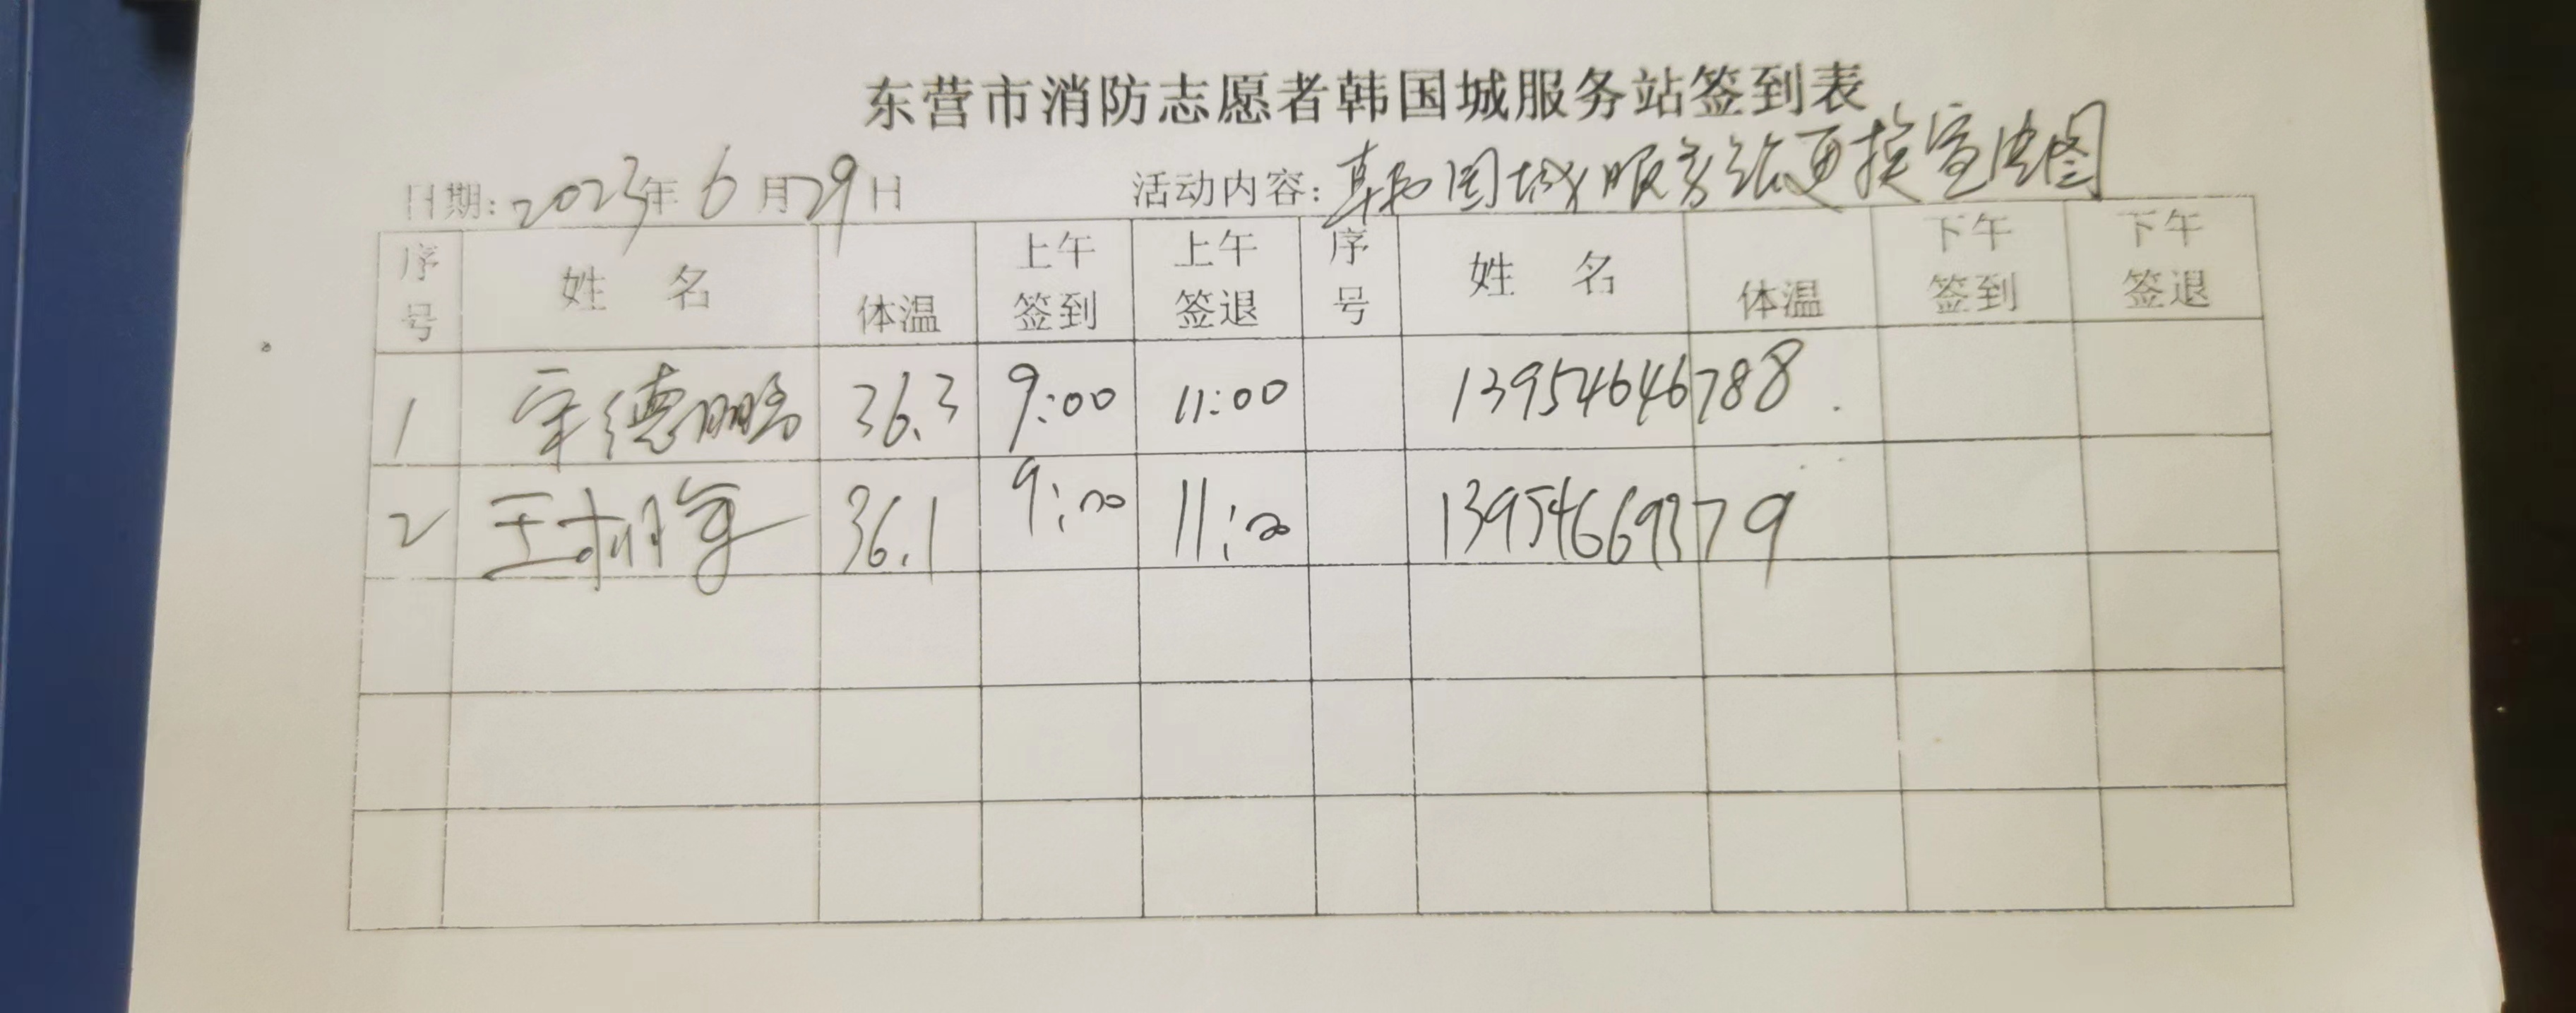 东营市消防志愿者韩国城服务站签到表
日期: 2023年 6 月29日 活动内容: 韩国城服务站更换宣传图
序号 姓 名 体温 上午签到 上午签退 序号 姓 名 体温 下午签到 下午签退
1 宋德鹏 36.3 9:00 11:00 13954646788
2 王 36.1 9:00 11:00 13954669379